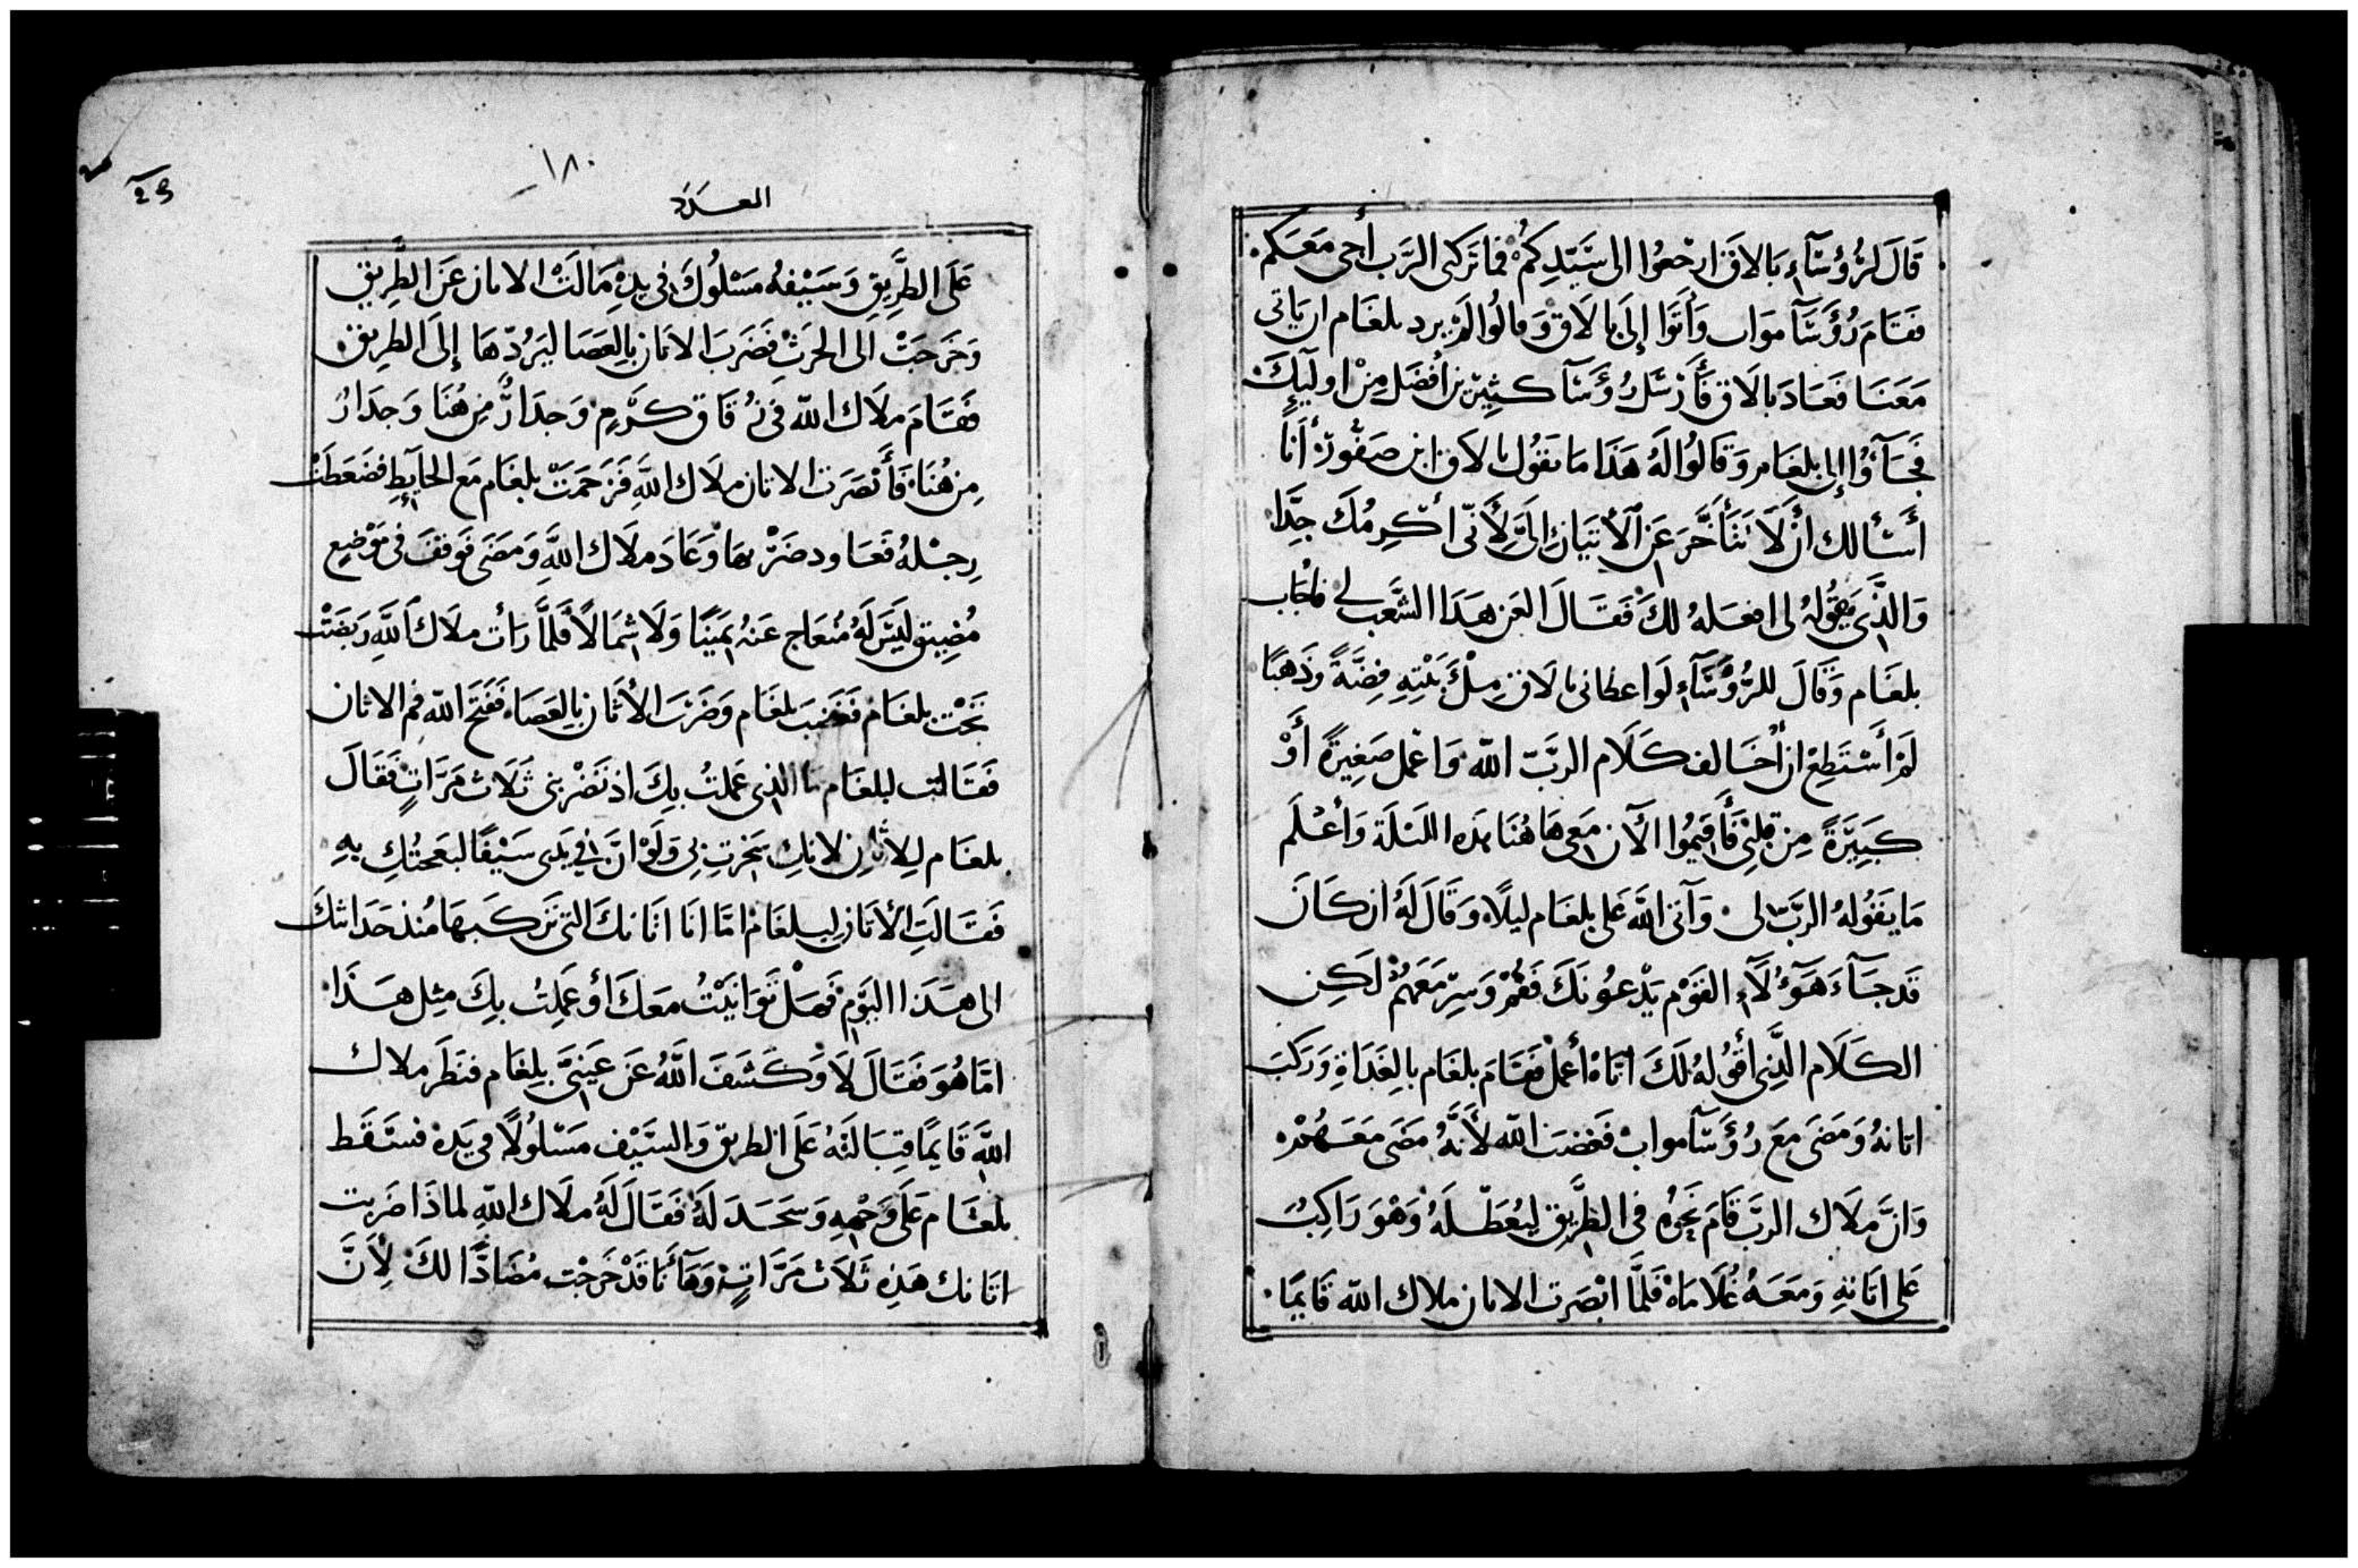 قَالَ لِرُؤُسَآءِ بَالاق ارجعُوا الى سَيّدِكُمْ فما تركنى الرَّب أجى مَعَكم
فَقَامَ رُؤَسَآ مواب وَأتَوا إِلَى بالاق وَقالُوا لَمْ يرد بلغام ان ياتى
مَعَنَا فَعَادَ بالاق فَأَرْسَل رُؤَسَآ كثِيرِين أفضَل مِنْ اوليِكَ
فجَآؤُا إلى بلغَام وَقَالُوا لَهُ هَذَا مَا يقُول بالاق ابن صَفُورْ أنَا
أَسْألك أنْ لَا تَتَأَخَّرَ عَن الاتيَان إلىَّ لأَنّى أكْرِمُكَ جِدًّا
وَالذَّى تقُولهُ لى افعَلهُ لَكَ فَقَالَ العَن هَذَا الشَّعب لى فاجَاب
بلغَام وَقَالَ للرُّؤُسَآءِ لَو اعطانى بالاق مِلْئَ بَيْتِهِ فِضَّةً وَذهبًا
لَمْ أَسْتَطِعْ ان أخَالف كَلَام الربّ اللّه وَاعْمل صَغِيرَةً أَوْ
كَبِيرَةً مِن قلبِى فَأَقيمُوا الآن مَعِى هَاهُنَا هذه الليْلَة وَأعْلَم
مَا يَقُولهُ الربّ لى وَآتى اللّه عَلى بلغَام ليلًا وَقَالَ لَهُ ان كَانَ
قَد جَآءَ هَؤُلَآءِ القَوْم يَدْعُونَكَ فَقُمْ وَسِرْ مَعَهُمْ لَكِن
الكَلَام الذَّى أقُولهُ لَكَ ايّاهُ أعْمل فَقَامَ بلغَام بِالغَدَاةِ وَرَكبَ
اتانهُ وَمَضَى مَعَ رُؤَسَآ مواب فَغضبَ اللّه لأَنَّهُ مَضَى مَعَهُمْ
وَانَّ مَلَاك الربّ قَامَ نحوهُ فى الطَّرِيق ليُعَطّلَهُ وَهْوَ رَاكِبُ
عَلى اتَانهِ وَمَعَهُ غُلَامَاهُ فَلَمَّا ابْصَرت الاتان ملاك اللّه قَايمًا
١٨٠
العَدَد
عَلَى الطَّرِيقِ وَسَيْفهُ مَسْلُوكَ فى يدِهِ مَالَتْ الاتان عَنَ الطَّرِيقِ
وَخَرَجَتْ الى الحَرَثْ فَضَرَبَ الاتان بِالعَصَا ليَرُدّهَا إلَى الطَرِيق
فَقَامَ ملَاك اللّه فى زُقَاق كَرْمٍ وَجدَارٌ مِن هُنَا وَجدَارُ
مِن هُنَا فَأَبْصَرت الاتان ملَاك اللَّهِ فَزَحَمَتْ بلغَام مَع الحَايِطِ فضَغطَتْ
رِجْلهُ فَعَاود ضَرْبهَا وَعَادَ مَلَاك اللَّهِ وَمَضَى فَوقفَ فى مَوْضِعٍ
مُضِيق لَيْسَ لَهُ مُنعَاج عَنهُ يَمَيْنًا وَلَا شِمَالًا فَلَمَّا رَأت ملَاك اللَّهِ رَبَضَتْ
تَحْت بلغَام فَغَضبَ بلغَام وَضَرَبَ الأتان بِالعَصَاه فَفَتَحَ اللّه فم الاتان
فَقَالت لبلغَام ما الذى عَملتُ بِكَ اذ تَضْربنى ثَلَاث مَرَّاتٍ فَقَالَ
بلغَام لِلاتان لانكِ سَخرتِ بى وَلَوْ انَّ فى يَدى سَيْفًا لبَعجتُكِ بهِ
فَقَالَتِ الأتَان لبلغَامْ امَّا انَا اتَانكَ التى تركَبهَا مُنذ حَدَاثتكَ
الى هَذَا اليَوْمِ فَهَلْ تَوَانَيْتُ مَعَكَ أو عَمِلتُ بِكَ مِثل هَذَا
امّا هُوَ فَقَالَ لَا وَكَشَفَ اللَّهُ عَن عَينَىَّ بلغَام فنَظَرَ ملاك
اللَّهِ قَايمًا قِبَالَتَهُ عَلَى الطريق وَالسَّيْف مَسْلُولًا فى يَدهْ فسَقَط
بلغَام عَلَى وَجْههِ وَسَجَدَ لَهُ فَقَالَ لَهُ ملَاك اللّهِ لماذَا ضَربت
اتَانك هَذِهِ ثَلَاث مَرَّاتٍ وَهَآ أنَا قَدْ خَرَجْت مُضَادًّا لَكَ لِأَنَّ